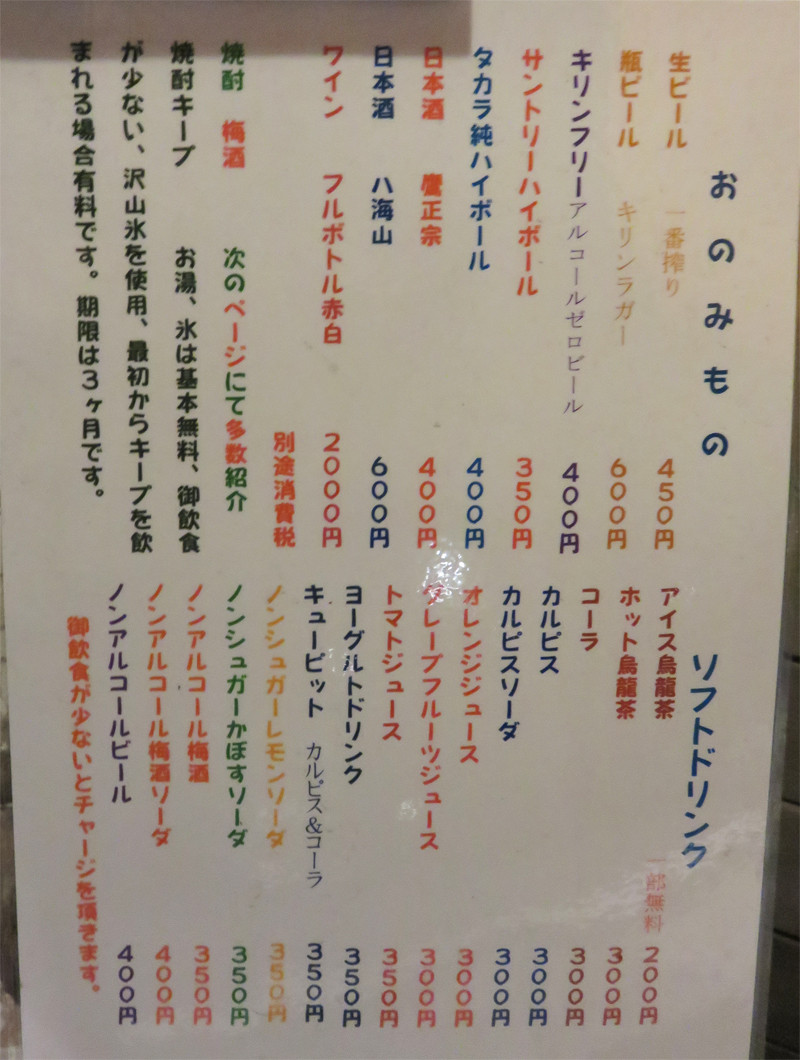 おのみもの
生ビール 一番搾り 450円
瓶ビール キリンラガー 600円
キリンフリーアルコールゼロビール 400円
サントリーハイボール 350円
タカラ純ハイボール 400円
日本酒 鷹正宗 400円
日本酒 八海山 600円
ワイン フルボトル赤白 2000円
別途消費税
焼酎 梅酒 次のページにて多数紹介
焼酎キープ お湯、氷は基本無料、御飲食
が少ない、沢山氷を使用、最初からキープを飲
まれる場合有料です。期限は3ヶ月です。
ソフトドリンク
一部無料
アイス烏龍茶 200円
ホット烏龍茶 300円
コーラ 300円
カルピス 300円
カルピスソーダ 300円
オレンジジュース 300円
グレープフルーツジュース 300円
トマトジュース 350円
ヨーグルトドリンク 350円
キューピット カルピス&コーラ 350円
ノンシュガーレモンソーダ 350円
ノンシュガーかぼすソーダ 350円
ノンアルコール梅酒 350円
ノンアルコール梅酒ソーダ 400円
ノンアルコールビール 400円
御飲食が少ないとチャージを頂きます。